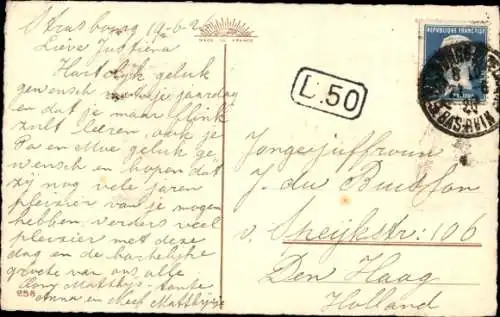 Strasbourg 19-6-2
Lieve Justiena
Hartelijk geluk
gewensch met je jaardag
en dat je maar flink
zult leeren, ook je
Pa en Moe geluk ge
wensch en hopen dat
zij nog vele jaren
plezier van je mogen
hebben, verders veel
plezier met deze
dag en de hartelijke
groete van ons alle
Cory Matthijs - tante
Anna en Matthijs
258
MADE IN FRANCE
L.50
REPUBLIQUE FRANÇAISE
BAS-RHIN
Jongejuffrouw
J. du Buisson
v. Speijkstr: 106
Den Haag
Holland